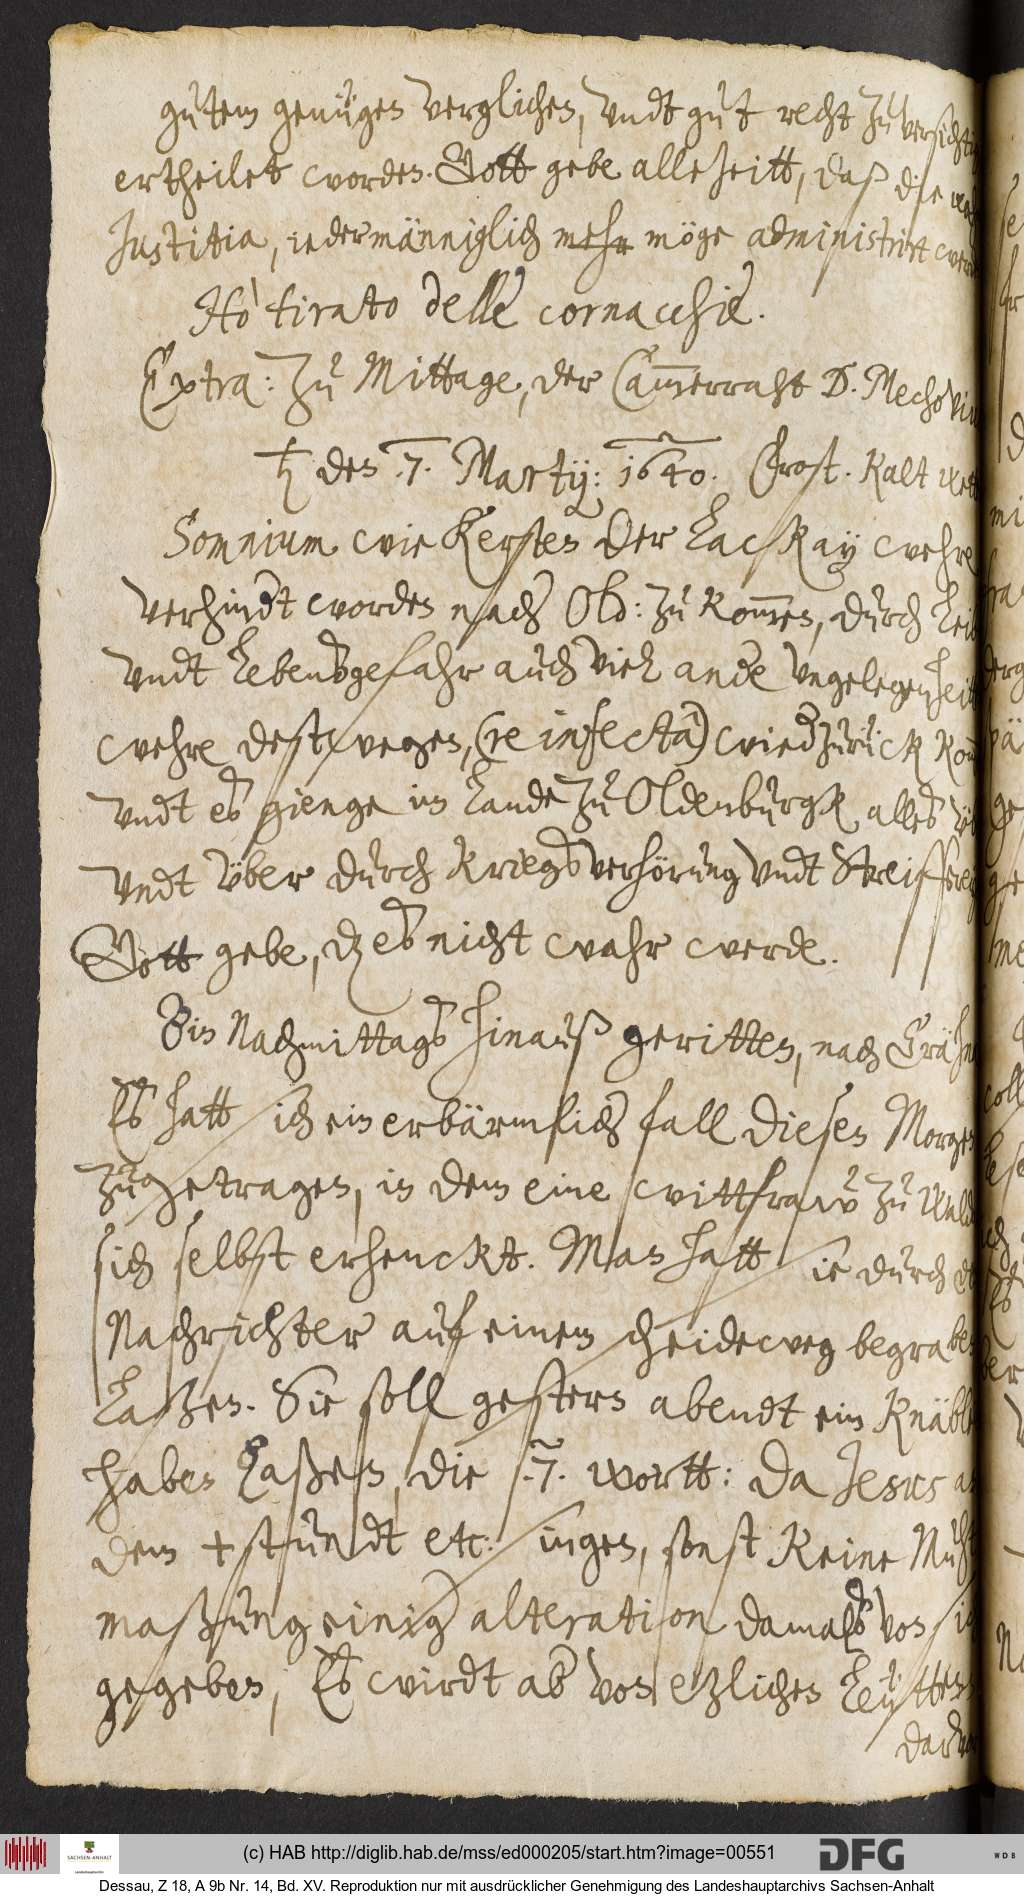 gutem genügen verglichen, undt gut recht zu versich
ertheilet worden. Gott gebe allezeitt, daß die
Justitia, iedermänniglich mehr möge administrirt
Hò tirato delle cornacchie.
Extra: zu Mittage, der Cammerraht D. Mechovi
♄ den .7. Martij: 1640. Frost. kalt
Somnium wie Kersten der Lackay wehre
verhindert worden nach Old: zu kommen, durch
undt Lebensgefahr auch viel andere ungelegenheit
wehre destwegen, (re infectâ) wieder zurück
undt es gienge im Lande zu Oldenburgk alles
undt über durch Kriegsverhörung undt Streiffere
Gott gebe, dz es nicht wahr werde.
Bin Nachmittags hinauß geritten, nach
Es hatt sich ein erbärmlicher fall diesen Morgen
zugetragen, in dem eine wittfraw zu
sich selbst erhenckt. Man hatt sie durch
Nachrichter auf einem scheideweg begraben
Laßen. Sie soll gestern abendt ein Knäble
haben Laßen, die .7. wortt: Da Jesus a
dem + stundt etc: singen, sonst keine
maßung einiger alteration damals von
gegeben, Es wirdt aber von etzlichen Leütten
(c) HAB http://diglib.hab.de/mss/ed000205/start.htm?image=00551
SACHSEN-ANHALT
DFG
W D B
Dessau, Z 18, A 9b Nr. 14, Bd. XV. Reproduktion nur mit ausdrücklicher Genehmigung des Landeshauptarchivs Sachsen-Anhalt